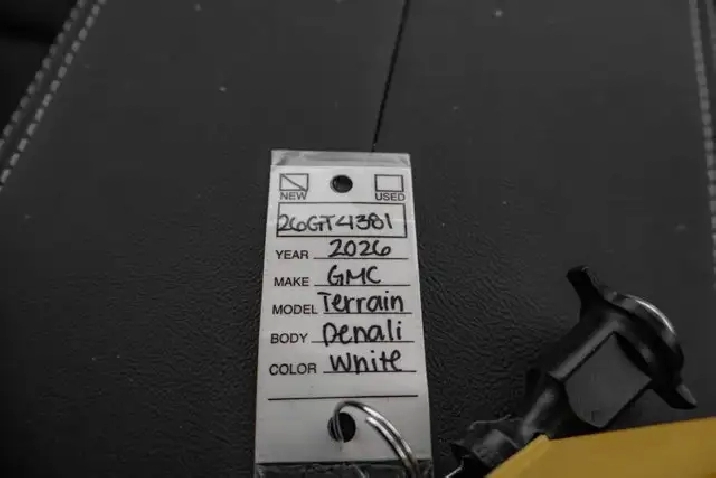 NEW USED
26GT4381
YEAR 2026
MAKE GMC
MODEL Terrain
BODY Denali
COLOR White